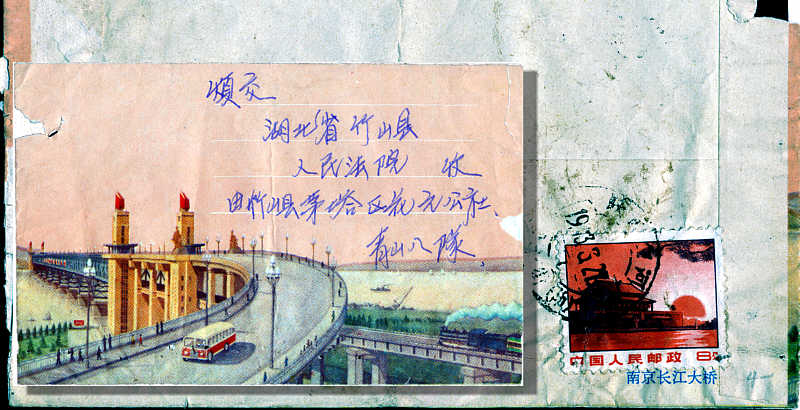 烦交
湖北省竹山县
人民法院 收
由竹山县 塔区花元公社、
青山八隊
中国人民邮政 8分
南京长江大桥